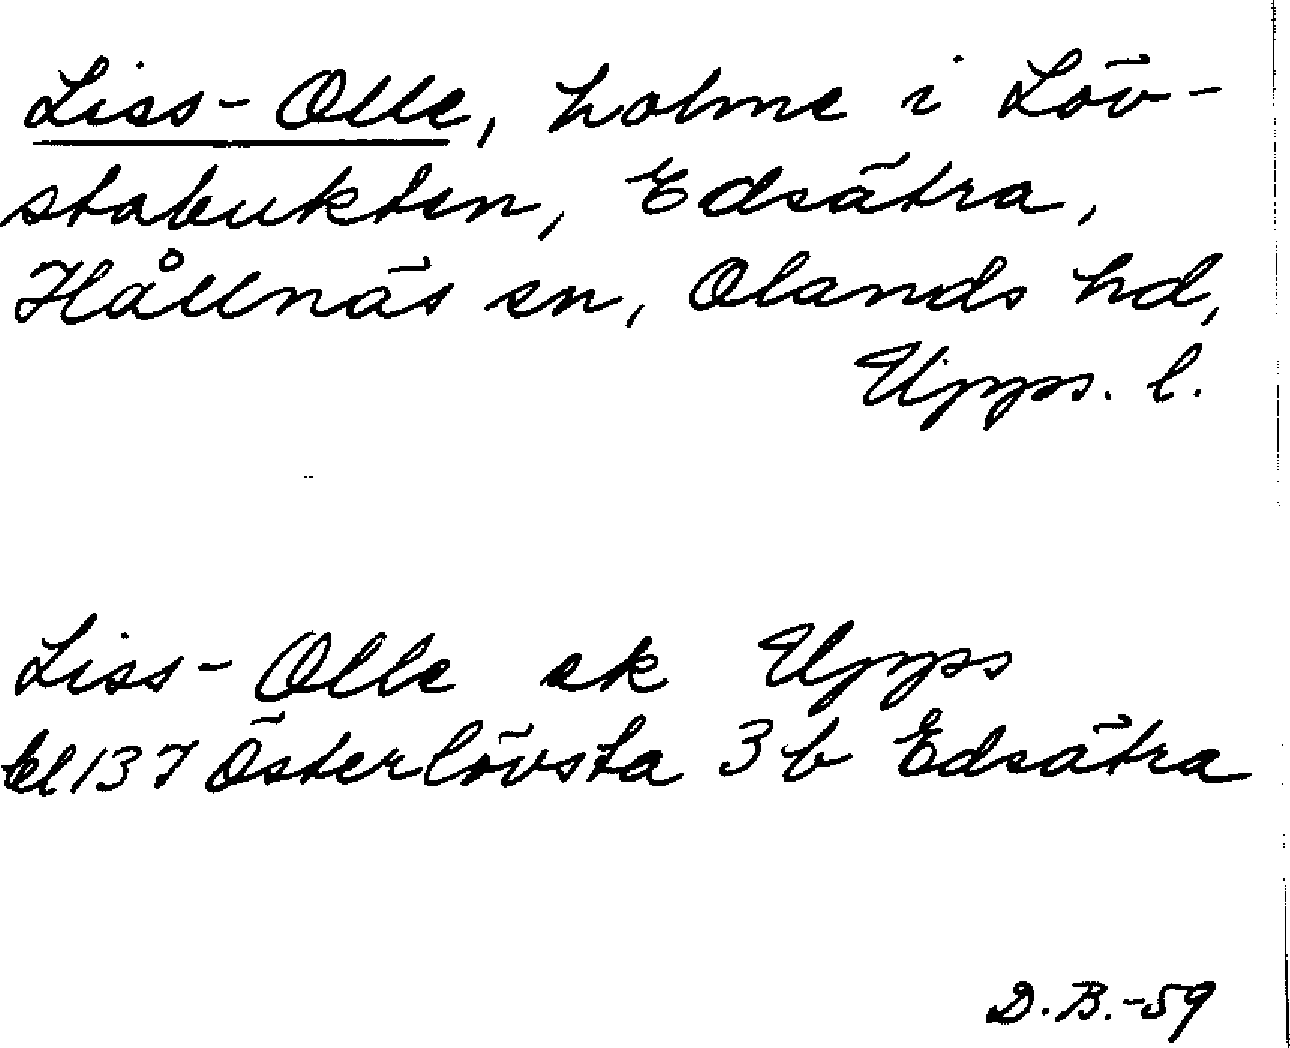 Liss-Olle, holme i Löv-
stabukten, Edsätra,
Hållnäs sn, Olands hd,
Upps. l.
Liss-Olle ek Upps
bl 137 Österlövsta 3b Edsätra
D.B.-59